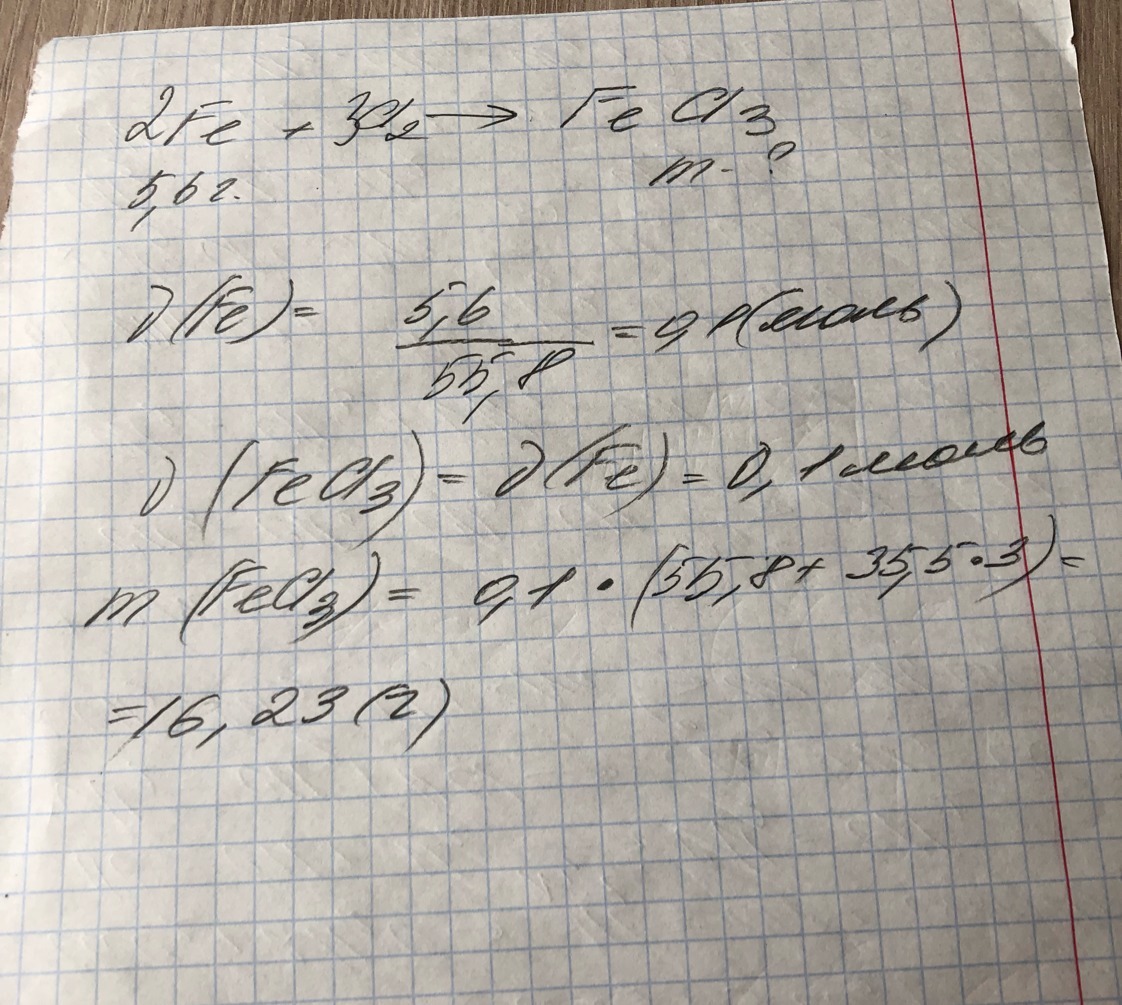 2Fe + 3Cl₂ → FeCl₃
5,6 г. m - ?
ν(Fe) = 5,6 / 55,8 = 0,1 (моль)
ν(FeCl₃) = ν(Fe) = 0,1 моль
m (FeCl₃) = 0,1 • (55,8 + 35,5 • 3) =
= 16,23 (г)